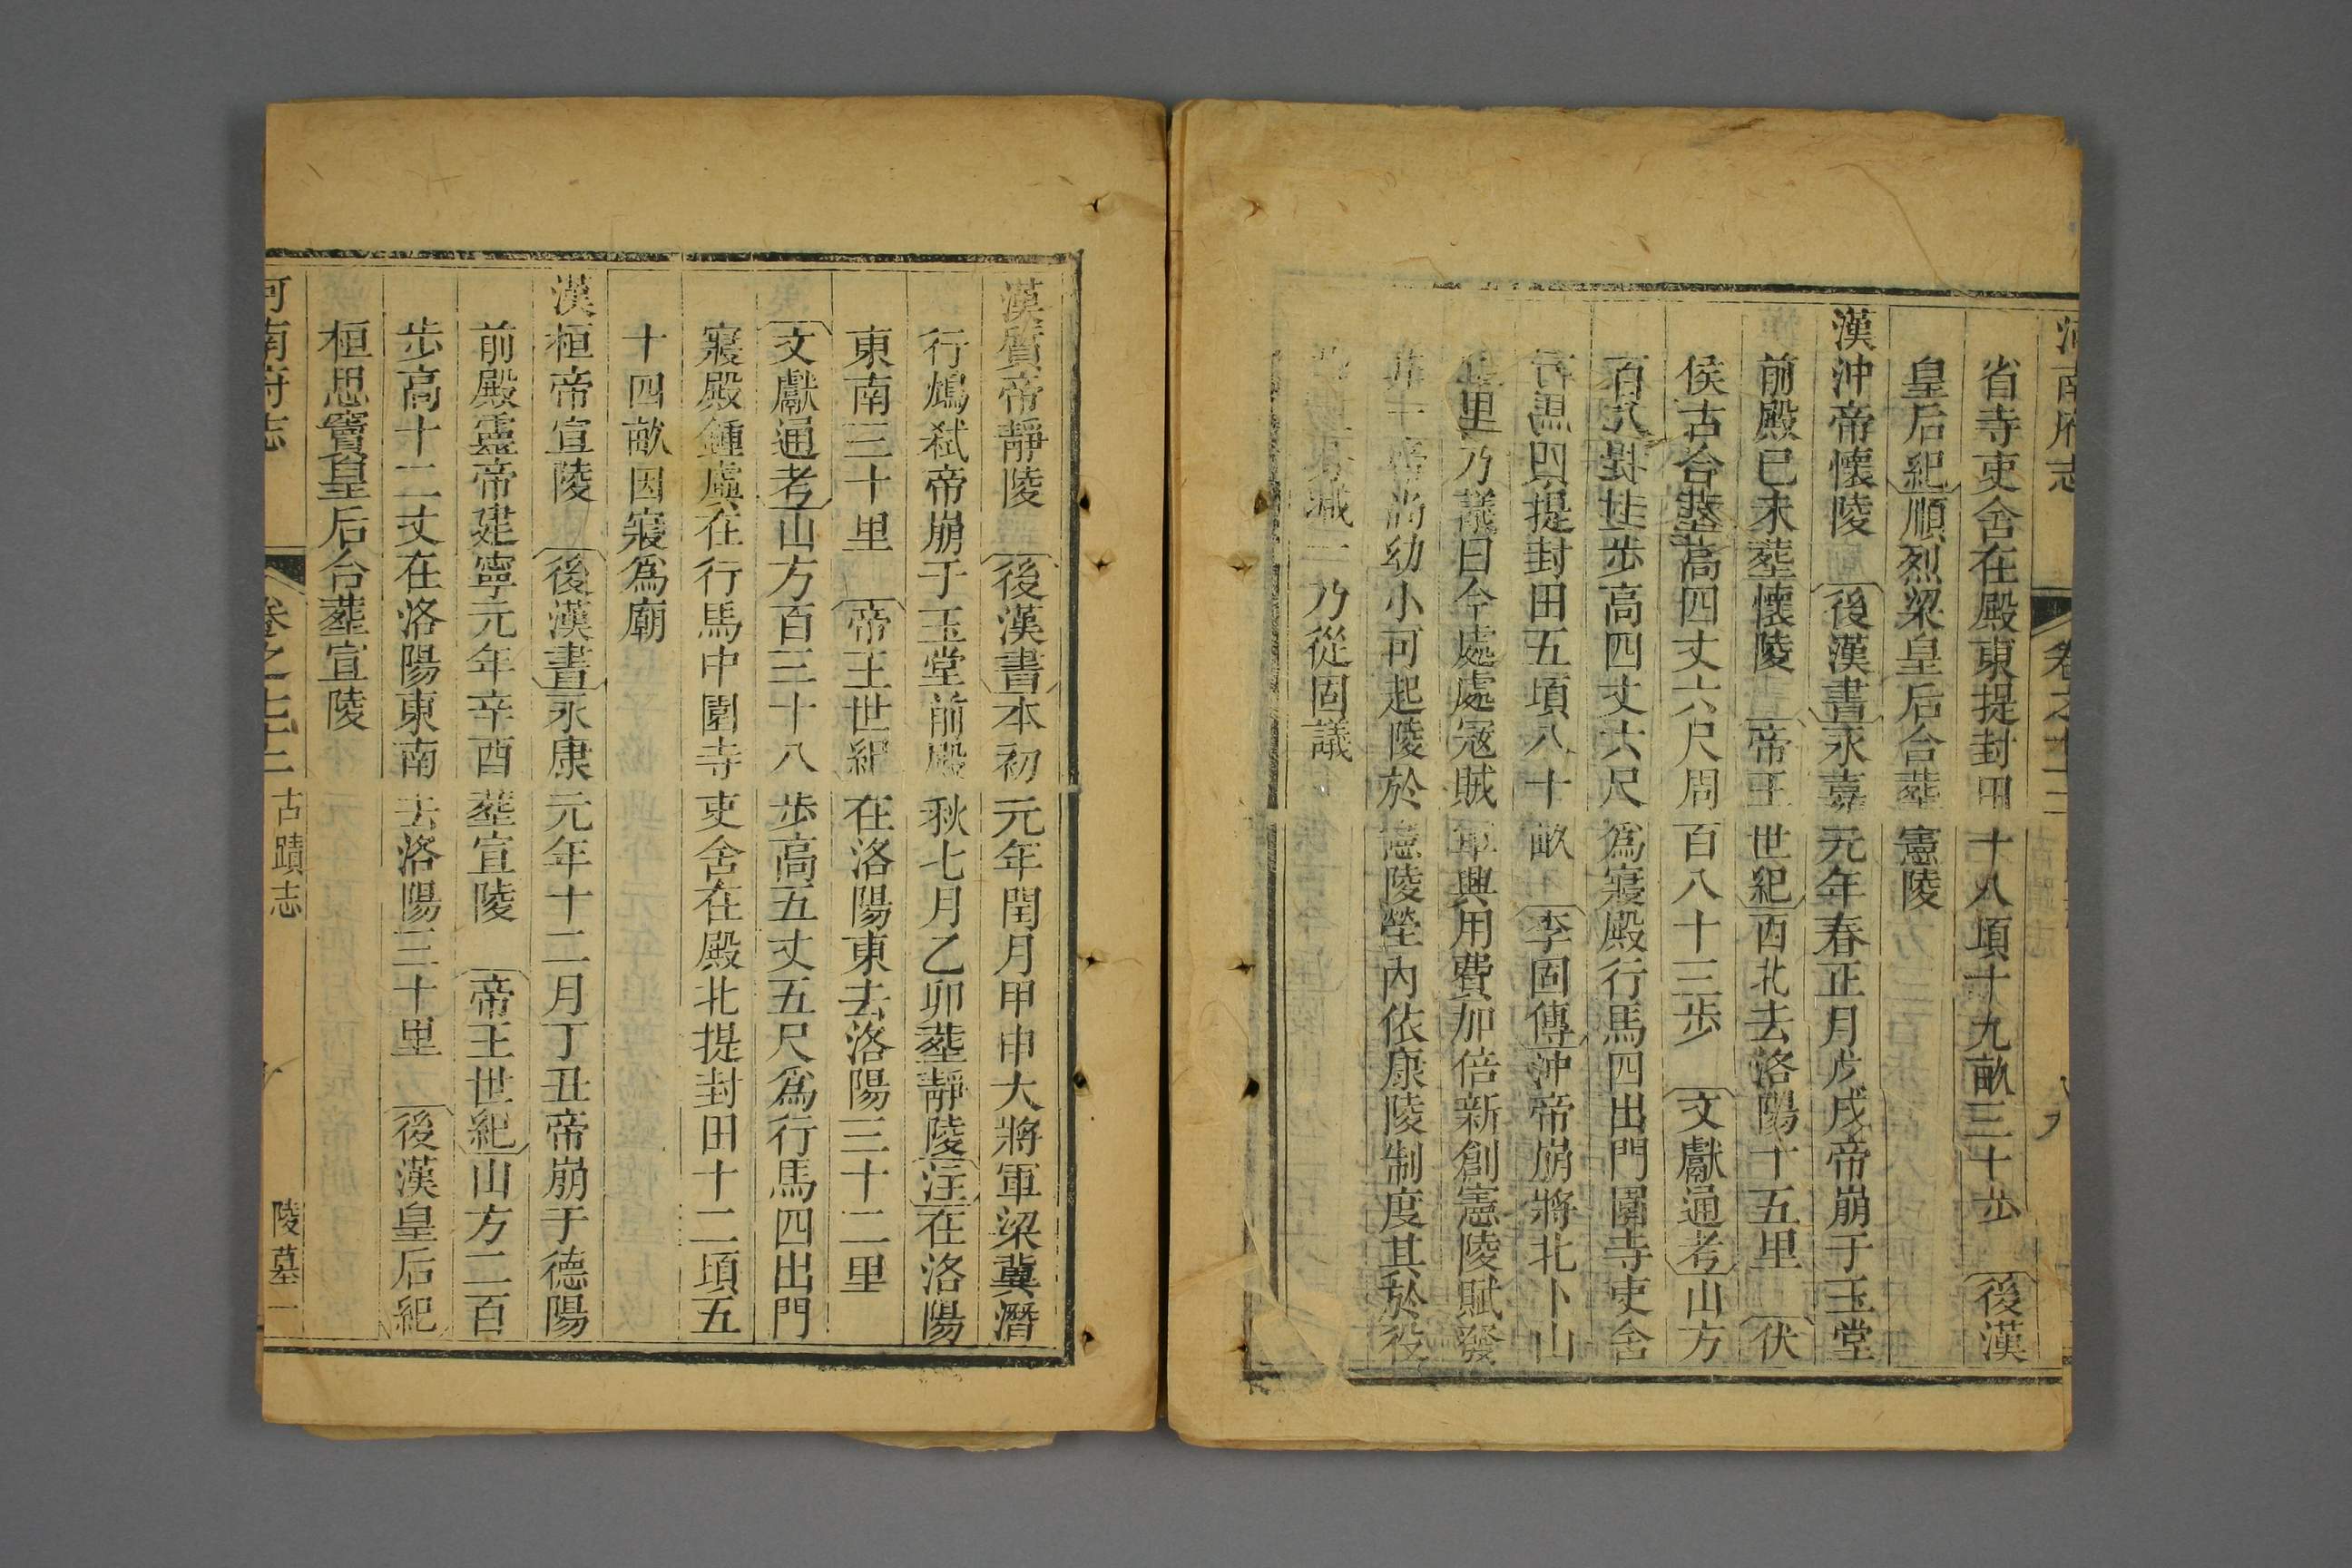 河南府志 卷之七十二
省寺吏舍在殿東提封田十八頃十九畝三十步 後漢
皇后紀順烈梁皇后合葬憲陵
漢沖帝懷陵 後漢書永嘉元年春正月戊戌帝崩于玉堂
前殿巳未葬懷陵 帝王世紀西北去洛陽十五里 伏
侯古今註高四丈六尺周百八十三步 文獻通考山方
百八十三步高四丈六尺爲寢殿行馬四出門園寺吏舍
提封田五頃八十畝 李固傳沖帝崩將北卜山
里乃議曰今處處寇賊軍興用費加倍新創憲陵賦發
非一帝尚幼小可起陵於憲陵塋內依康陵制度其於役
減 乃從固議
漢質帝靜陵 後漢書本初元年閏月甲申大將軍梁冀潛
行鴆弑帝崩于玉堂前殿秋七月乙卯葬靜陵注在洛陽
東南三十里 帝王世紀在洛陽東去洛陽三十二里
文獻通考山方百三十八步高五丈五尺爲行馬四出門
寢殿鍾虡在行馬中園寺吏舍在殿北提封田十二頃五
十四畝因寢爲廟
漢桓帝宣陵 後漢書永康元年十二月丁丑帝崩于德陽
前殿靈帝建寧元年辛酉葬宣陵 帝王世紀山方二百
步高十二丈在洛陽東南去洛陽三十里 後漢皇后紀
桓思竇皇后合葬宣陵
河南府志 卷之七十二 古蹟志 陵墓一